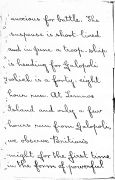 anxious for battle. The
suspense is short lived
and in June a troop-ship
is heading for Galopoli
which is a forty eight
hours run. At Lemnos
Island and only a few
hours run from Galopoli,
we observe Britain's
might for the first time
in the form of powerful